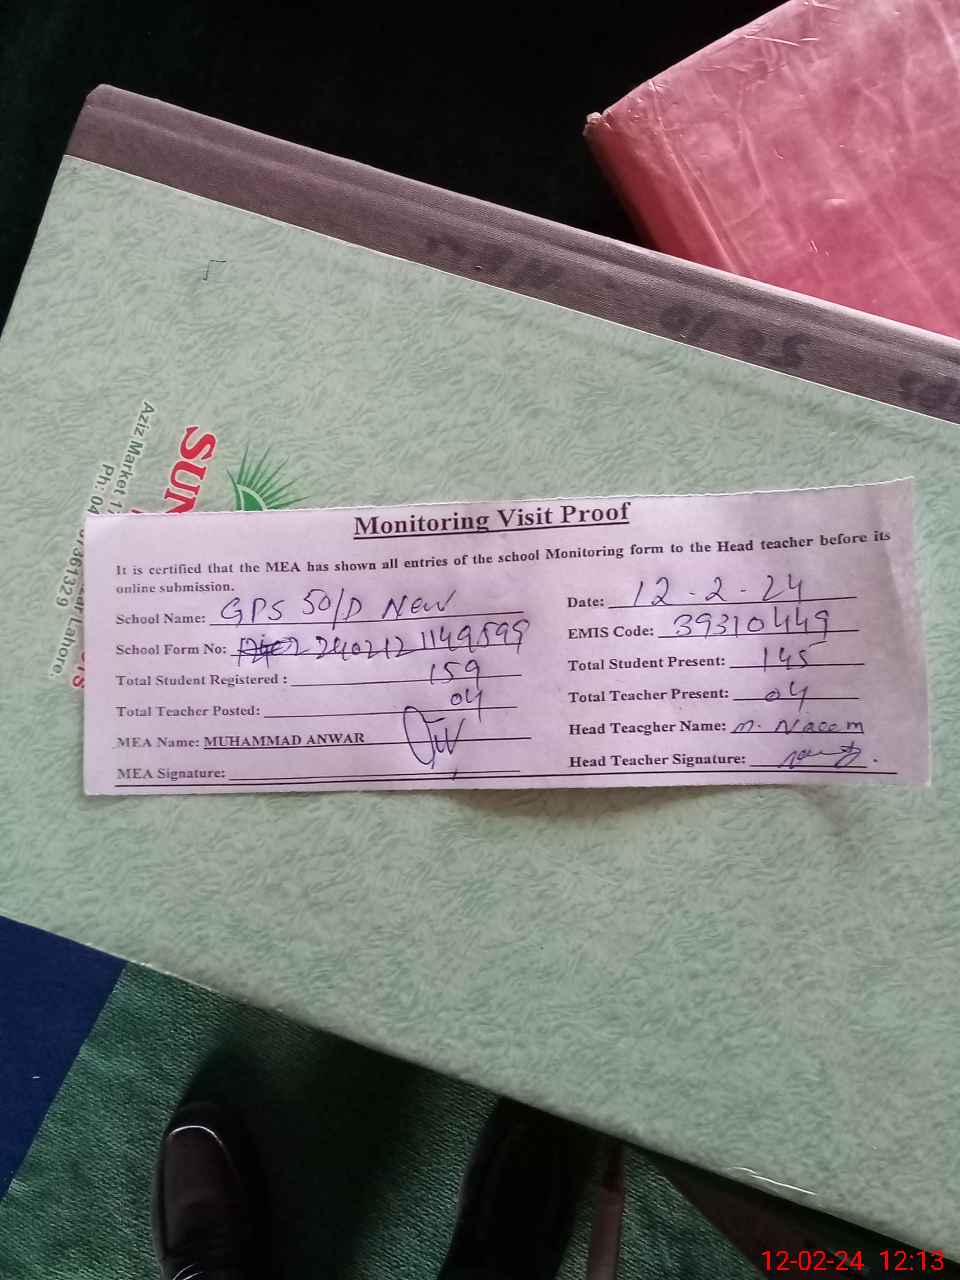 50 10
SUN
Aziz Market 1
Ph: 04
7361329
zar Lahore.
Monitoring Visit Proof
It is certified that the MEA has shown all entries of the school Monitoring form to the Head teacher before its
online submission.
School Name: GPS 50/D New
Date: 12-2-24
School Form No: 2402121149599
EMIS Code: 39310449
Total Student Registered : 159
Total Student Present: 145
Total Teacher Posted: 04
Total Teacher Present: 04
MEA Name: MUHAMMAD ANWAR
Head Teacgher Name: M. Naeem
MEA Signature:
Head Teacher Signature:
12-02-24 12:13